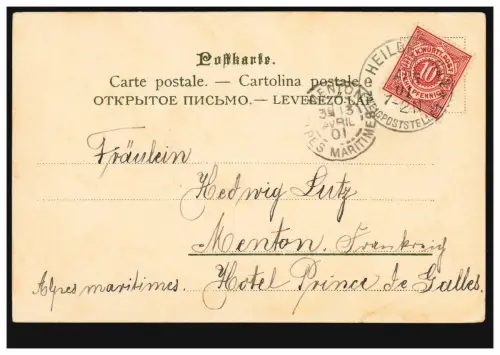 Postkarte.
Carte postale. — Cartolina postale
ОТКРЫТОЕ ПИСЬМО. — LEVELEZŐ-LAP
10
MENTON
3E 13
AVRIL
01
ALPES MARITIMES
HEILB
1-2
Fräulein
Hedwig Lutz
Menton. Frankreich
Alpes maritimes. Hotel Prince de Galles.